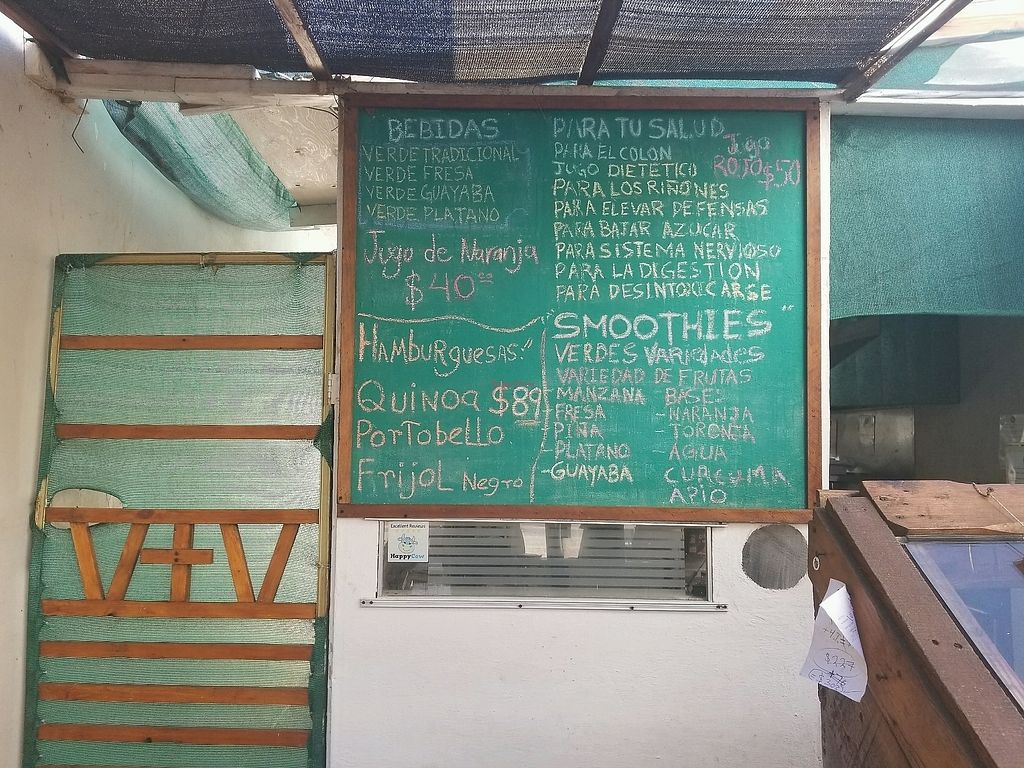 BEBIDAS
VERDE TRADICIONAL
VERDE FRESA
VERDE GUAYABA
VERDE PLATANO
Jugo de Naranja
$40.00
HAMBURguESAS:"
QUINOA $89
PORTOBELLO
FRIJOL Negro
PARA TU SALUD
PARA EL COLON
JUGO DIETETICO
PARA LOS RIÑONES
PARA ELEVAR DEFENSAS
PARA BAJAR AZUCAR
PARA SISTEMA NERVIOSO
PARA LA DIGESTION
PARA DESINTOXICARSE
Jugo
ROJO $50
"SMOOTHIES"
VERDES VARIEDADES
VARIEDAD DE FRUTAS
MANZANA BASE:
-FRESA -NARANJA
PIÑA -TORONJA
-PLATANO -AGUA
-GUAYABA CURCUMA
APIO
Excellent Reviews
HappyCow
$227